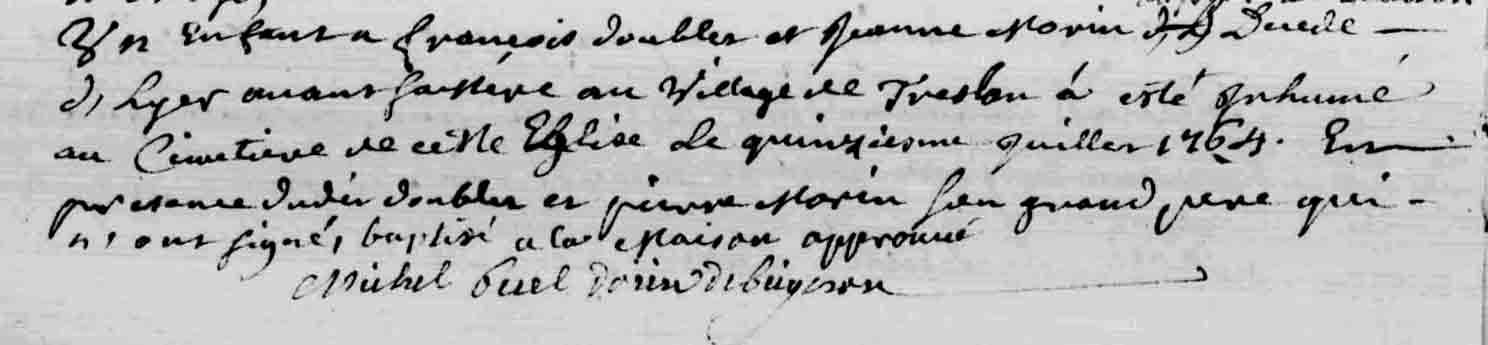 Vn Enfant a françois doublet et Jeanne Morin decede
d'hyer avant hastére au Village de Treslou à esté Inhumé
au Cimetiere de cette Eglise Le quinziesme Juillet 1764. En
presance dudit doublet et pierre Morin son grand pere qui
n'ont signé, baptisé a la Maison approuvé
Michel